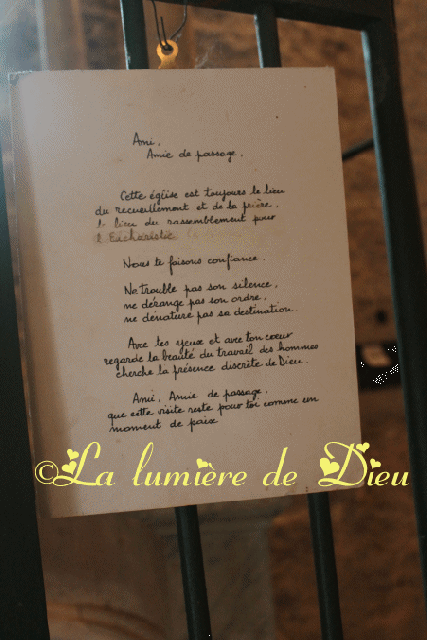 Ami,
Amie de passage,
Cette église est toujours le lieu
du recueillement et de la prière,
le lieu du rassemblement pour
l'Eucharistie
Nous te faisons confiance.
Ne trouble pas son silence,
ne dérange pas son ordre,
ne dénature pas sa destination.
Avec les yeux et avec ton coeur
regarde la beauté du travail des hommes
cherche la présence discrète de Dieu.
Ami, Amie de passage,
que cette visite reste pour toi comme un
moment de paix
©La lumière de Dieu